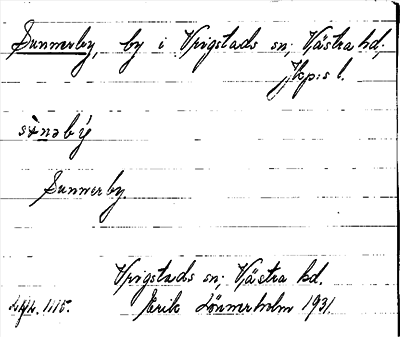 Sunnerby, by i Vrigstads sn; Västra hd;
Jkp:s l.
Sunnerby
Vrigstads sn; Västra hd.
Erik Lönnerholm 1931.